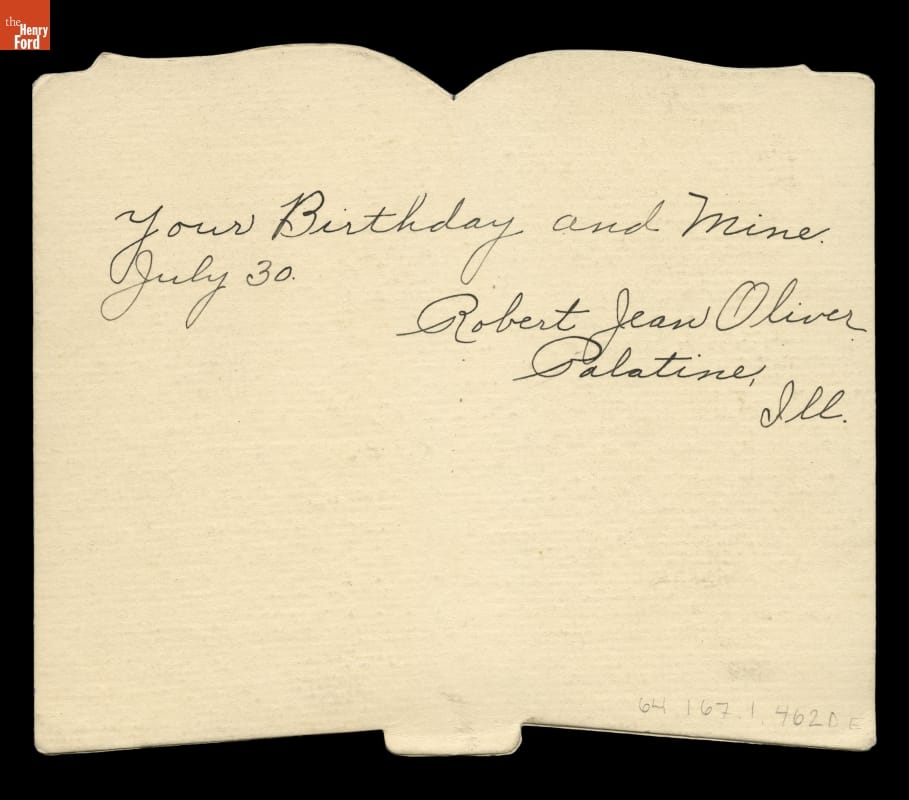 the
Henry
Ford
Your Birthday and Mine.
July 30.
Robert Jean Oliver
Palatine,
Ill.
64.167.1.462D E